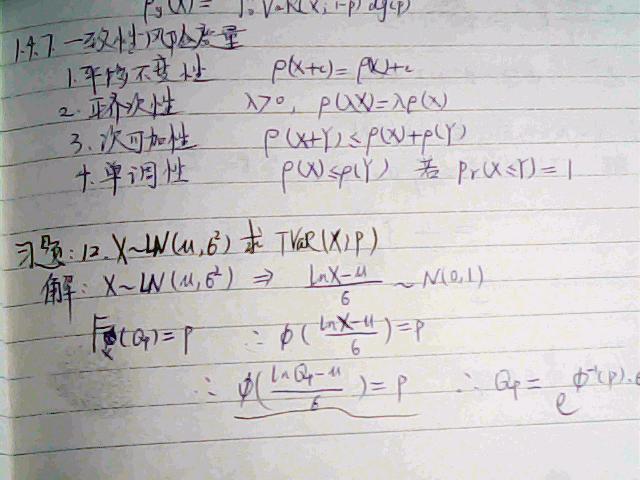 ρg(X)= ∫₀ VaR(X, 1-p) dg(p)
1.4.7. 一致性风险度量
1. 平移不变性 ρ(X+c)=ρ(X)+c
2. 正齐次性 λ>0, ρ(λX)=λρ(X)
3. 次可加性 ρ(X+Y)≤ρ(X)+ρ(Y)
4. 单调性 ρ(X)≤ρ(Y) 若 Pr(X≤Y)=1
习题: 12. X~LN(μ,б²) 求 TVaR(X,p)
解: X~LN(μ,б²) ⇒ (lnX-μ)/б ~ N(0,1)
Fx(Qp)=p ∴ φ((lnX-μ)/б)=p
∴ φ((lnQp-μ)/б)=p ∴ Qp= e^φ⁻¹(p)·б